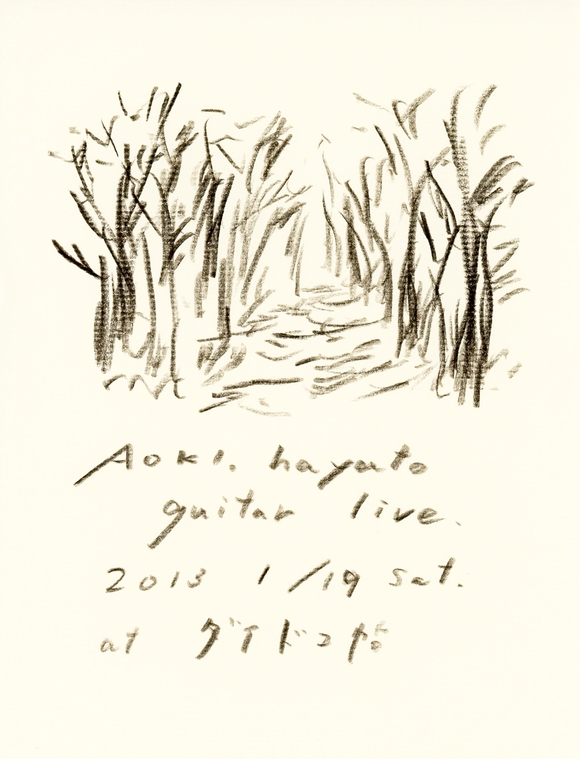 Aoki. hayato
guitar live.
2013 1/19 sat.
at ダイドコ帖